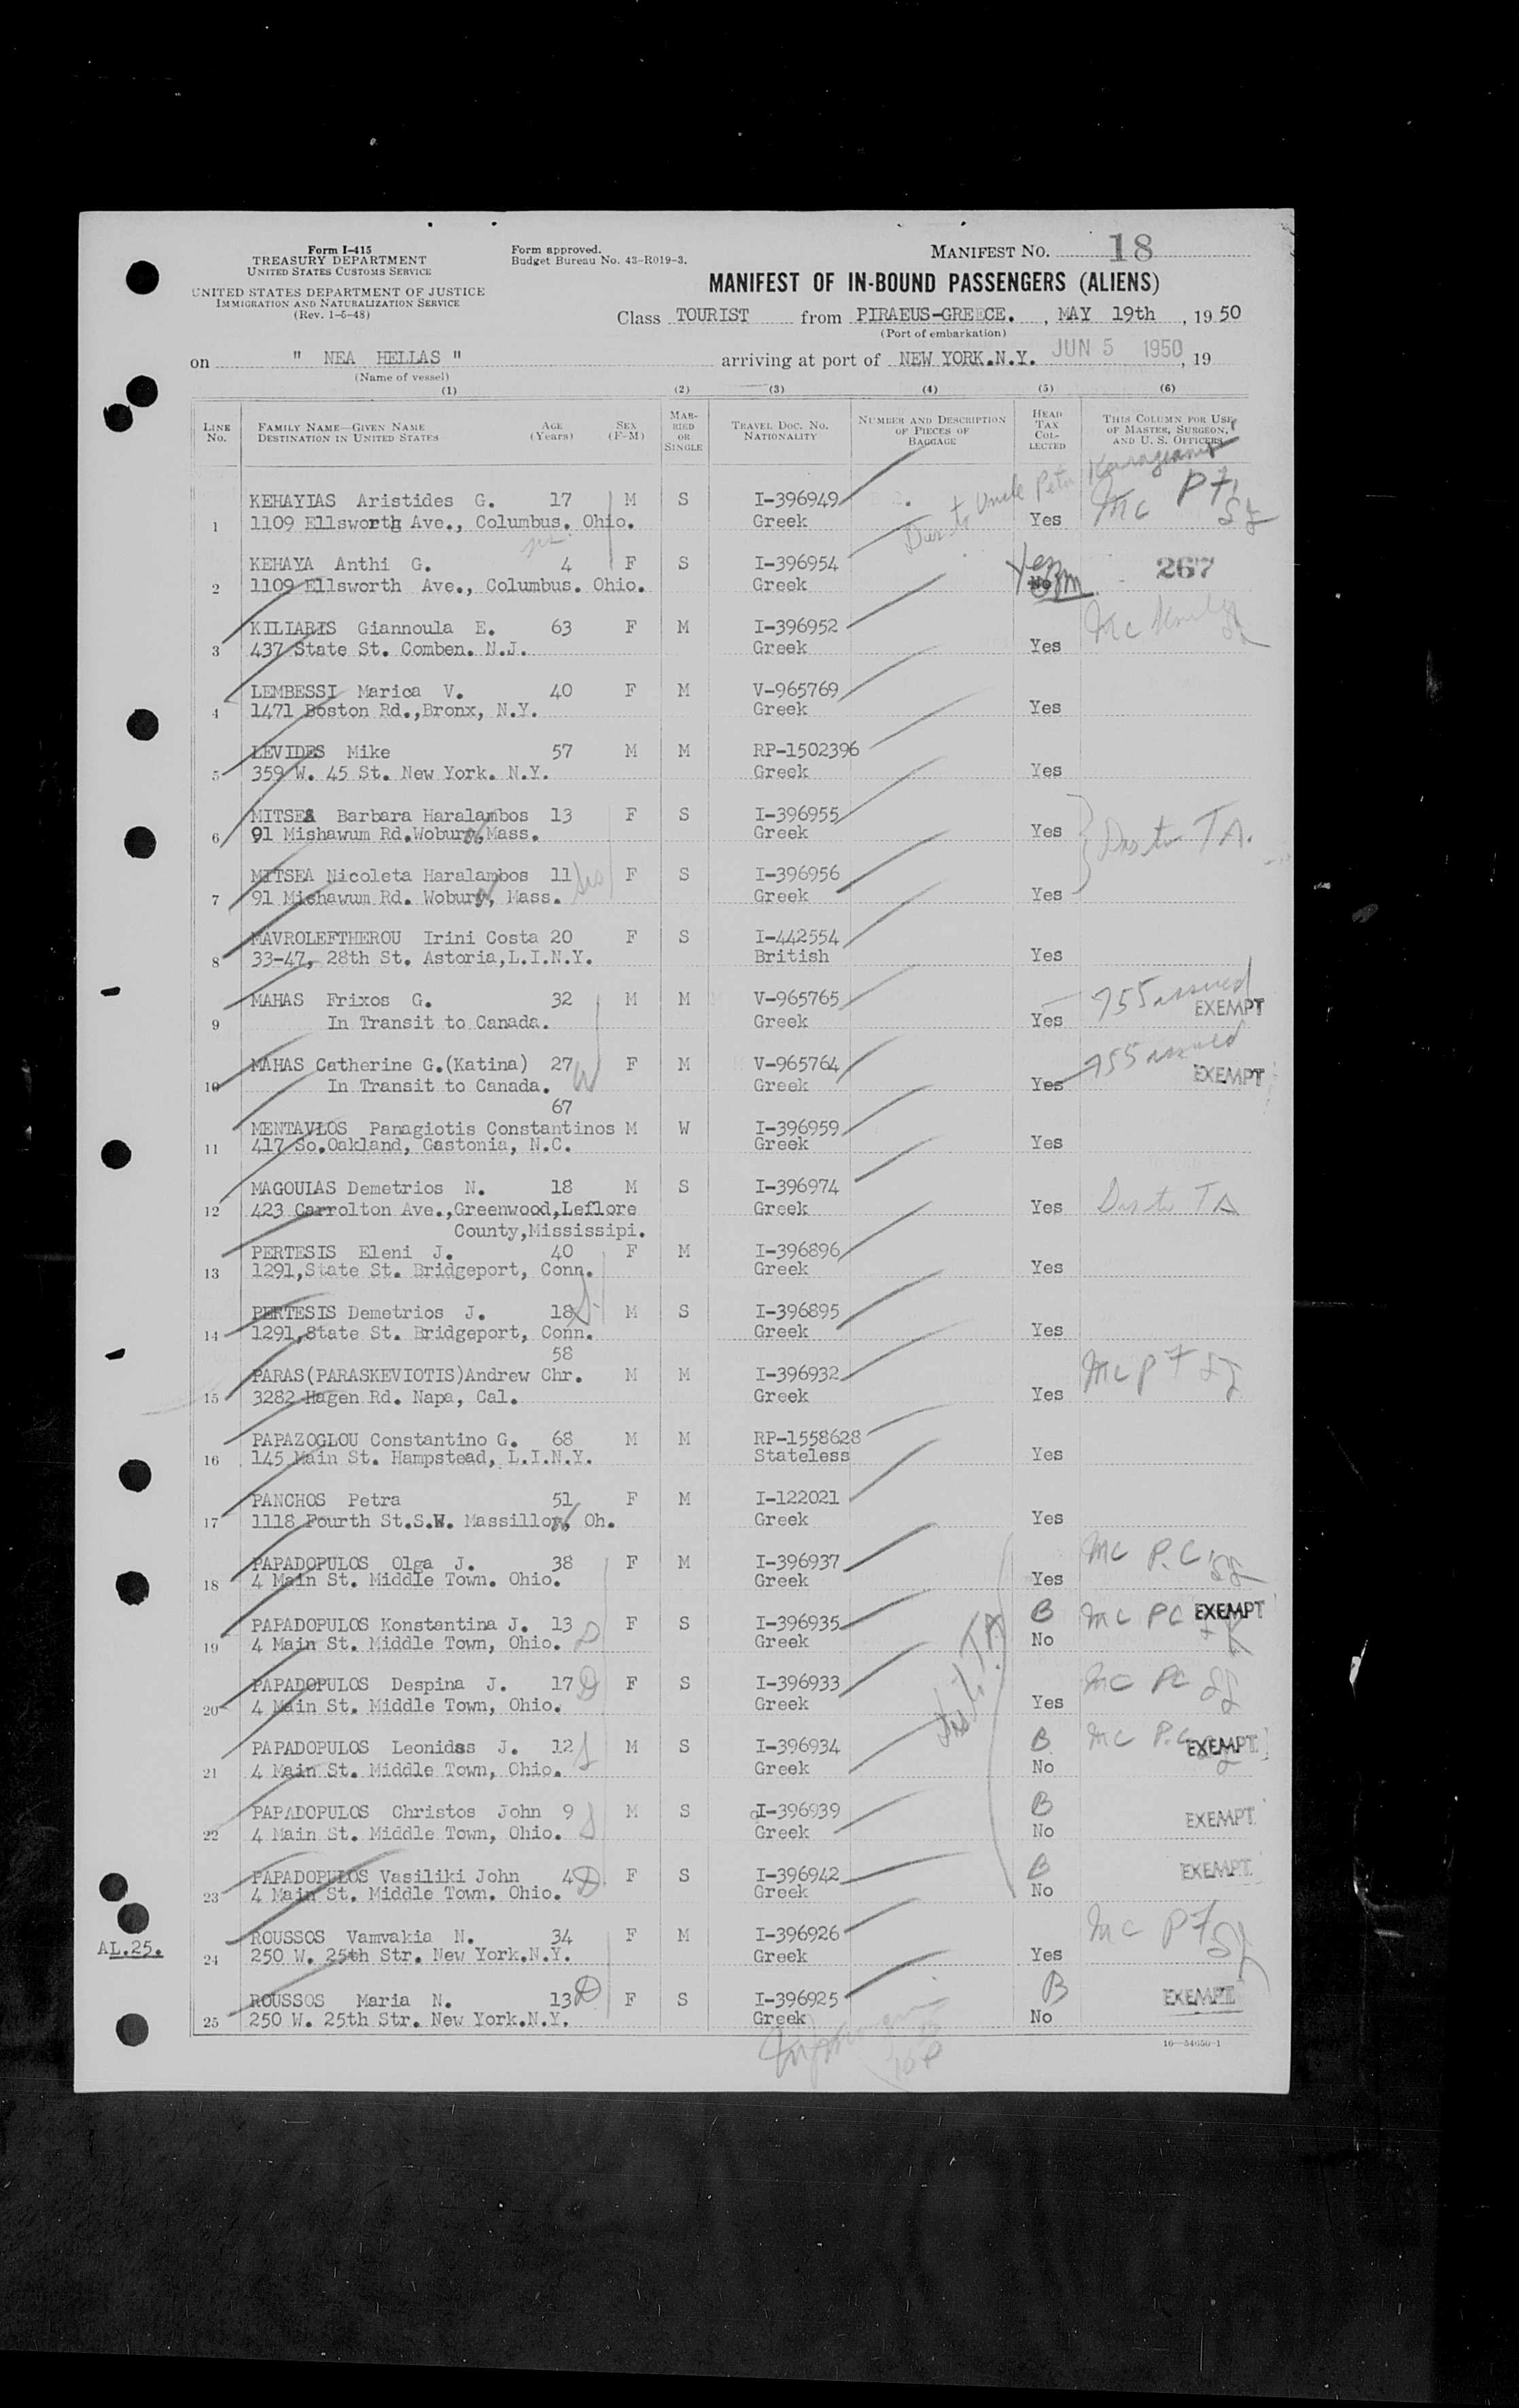 Form I-415
TREASURY DEPARTMENT
UNITED STATES CUSTOMS SERVICE
UNITED STATES DEPARTMENT OF JUSTICE
IMMIGRATION AND NATURALIZATION SERVICE
(Rev. 1-5-48)
Form approved.
Budget Bureau No. 43-R019-3.
MANIFEST NO. 18
MANIFEST OF IN-BOUND PASSENGERS (ALIENS)
Class TOURIST from PIRAEUS-GREECE. , MAY 19th , 19 50
(Port of embarkation)
on " NEA HELLAS " arriving at port of NEW YORK.N.Y. JUN 5 1950 , 19
(Name of vessel)
(1) (2) (3) (4) (5) (6)
LINE NO. FAMILY NAME—GIVEN NAME DESTINATION IN UNITED STATES AGE (Years) SEX (F-M) MARRIED OR SINGLE TRAVEL DOC. NO. NATIONALITY NUMBER AND DESCRIPTION OF PIECES OF BAGGAGE HEAD TAX COLLECTED THIS COLUMN FOR USE OF MASTER, SURGEON, AND U. S. OFFICERS
Dis to Uncle Peter
KEHAYIAS Aristides G. 17 M S I-396949 Mc PF
1 1109 Ellsworth Ave., Columbus. Ohio. Greek Yes
KEHAYA Anthi G. 4 F S I-396954 Yes 267
2 1109 Ellsworth Ave., Columbus. Ohio. Greek No
KILIARIS Giannoula E. 63 F M I-396952 Mc
3 437 State St. Comben. N.J. Greek Yes
LEMBESSI Marica V. 40 F M V-965769
4 1471 Boston Rd.,Bronx, N.Y. Greek Yes
LEVIDES Mike 57 M M RP-1502396
5 359 W. 45 St. New York. N.Y. Greek Yes
MITSEA Barbara Haralambos 13 F S I-396955
6 91 Mishawum Rd.Woburn,Mass. Greek Yes Dis to TA.
MITSEA Nicoleta Haralambos 11 sis F S I-396956
7 91 Mishawum Rd. Woburn, Mass. Greek Yes
MAVROLEFTHEROU Irini Costa 20 F S I-442554
8 33-47, 28th St. Astoria,L.I.N.Y. British Yes
MAHAS Frixos G. 32 M M V-965765 755 issued EXEMPT
9 In Transit to Canada. Greek Yes
MAHAS Catherine G.(Katina) 27 W F M V-965764 755 issued EXEMPT
10 In Transit to Canada. Greek Yes
67
MENTAVLOS Panagiotis Constantinos M W I-396959
11 417 So.Oakland, Gastonia, N.C. Greek Yes
MAGOULAS Demetrios N. 18 M S I-396974
12 423 Carrolton Ave.,Greenwood,Leflore Greek Yes Dis to TA
County,Mississipi.
PERTESIS Eleni J. 40 F M I-396896
13 1291,State St. Bridgeport, Conn. Greek Yes
PERTESIS Demetrios J. 18 S M S I-396895
14 1291,State St. Bridgeport, Conn. Greek Yes
58
PARAS(PARASKEVIOTIS)Andrew Chr. M M I-396932 Mc PF
15 3282 Hagen Rd. Napa, Cal. Greek Yes
PAPAZOGLOU Constantino G. 68 M M RP-1558628
16 145 Main St. Hampstead, L.I.N.Y. Stateless Yes
PANCHOS Petra 51 F M I-122021
17 1118 Fourth St.S.W. Massillon, Oh. Greek Yes
PAPADOPULOS Olga J. 38 F M I-396937 Mc P.C.
18 4 Main St. Middle Town. Ohio. Greek Yes
PAPADOPULOS Konstantina J. 13 D F S I-396935 B Mc PC EXEMPT
19 4 Main St. Middle Town, Ohio. Greek No
Dis to TA
PAPADOPULOS Despina J. 17 D F S I-396933 Mc PC
20 4 Main St. Middle Town, Ohio. Greek Yes
PAPADOPULOS Leonidas J. 12 S M S I-396934 B Mc P.C. EXEMPT
21 4 Main St. Middle Town, Ohio. Greek No
PAPADOPULOS Christos John 9 S M S I-396939 B EXEMPT
22 4 Main St. Middle Town, Ohio. Greek No
PAPADOPULOS Vasiliki John 4 D F S I-396942 B EXEMPT
23 4 Main St. Middle Town. Ohio. Greek No
AL.25.
ROUSSOS Vamvakia N. 34 F M I-396926 Mc PF
24 250 W. 25th Str. New York.N.Y. Greek Yes
ROUSSOS Maria N. 13 D F S I-396925 B EXEMPT
25 250 W. 25th Str. New York.N.Y. Greek No
16—54650-1